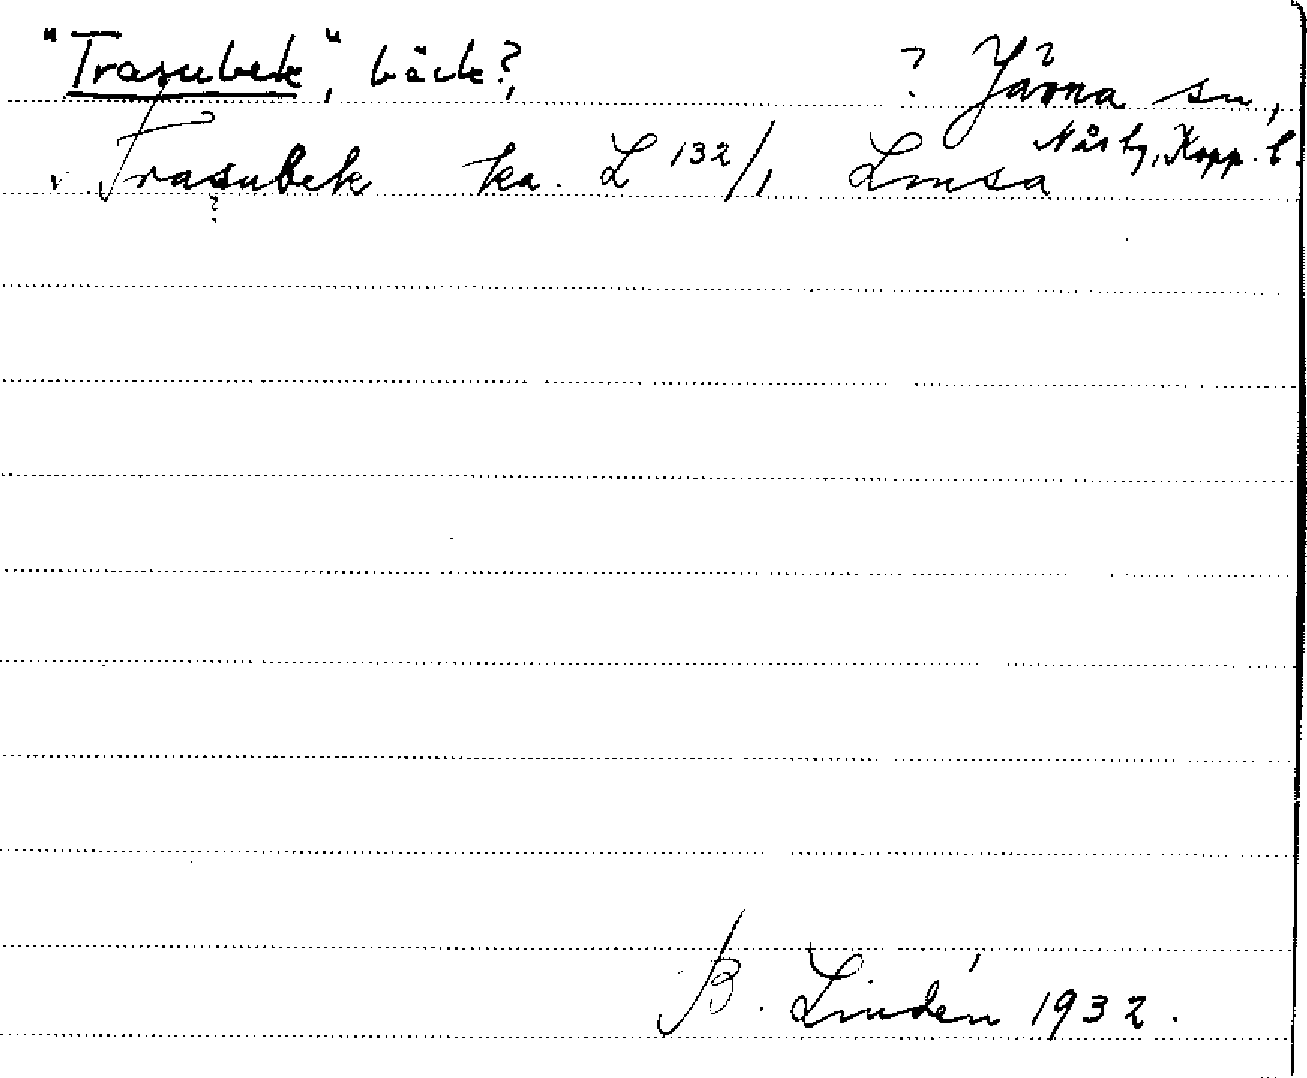 "Trasubek", bäck? ? Järna sn,
Nås tg, Kopp. l.
Trasubek ka. L 132/1 Limsa
B. Lindén 1932.